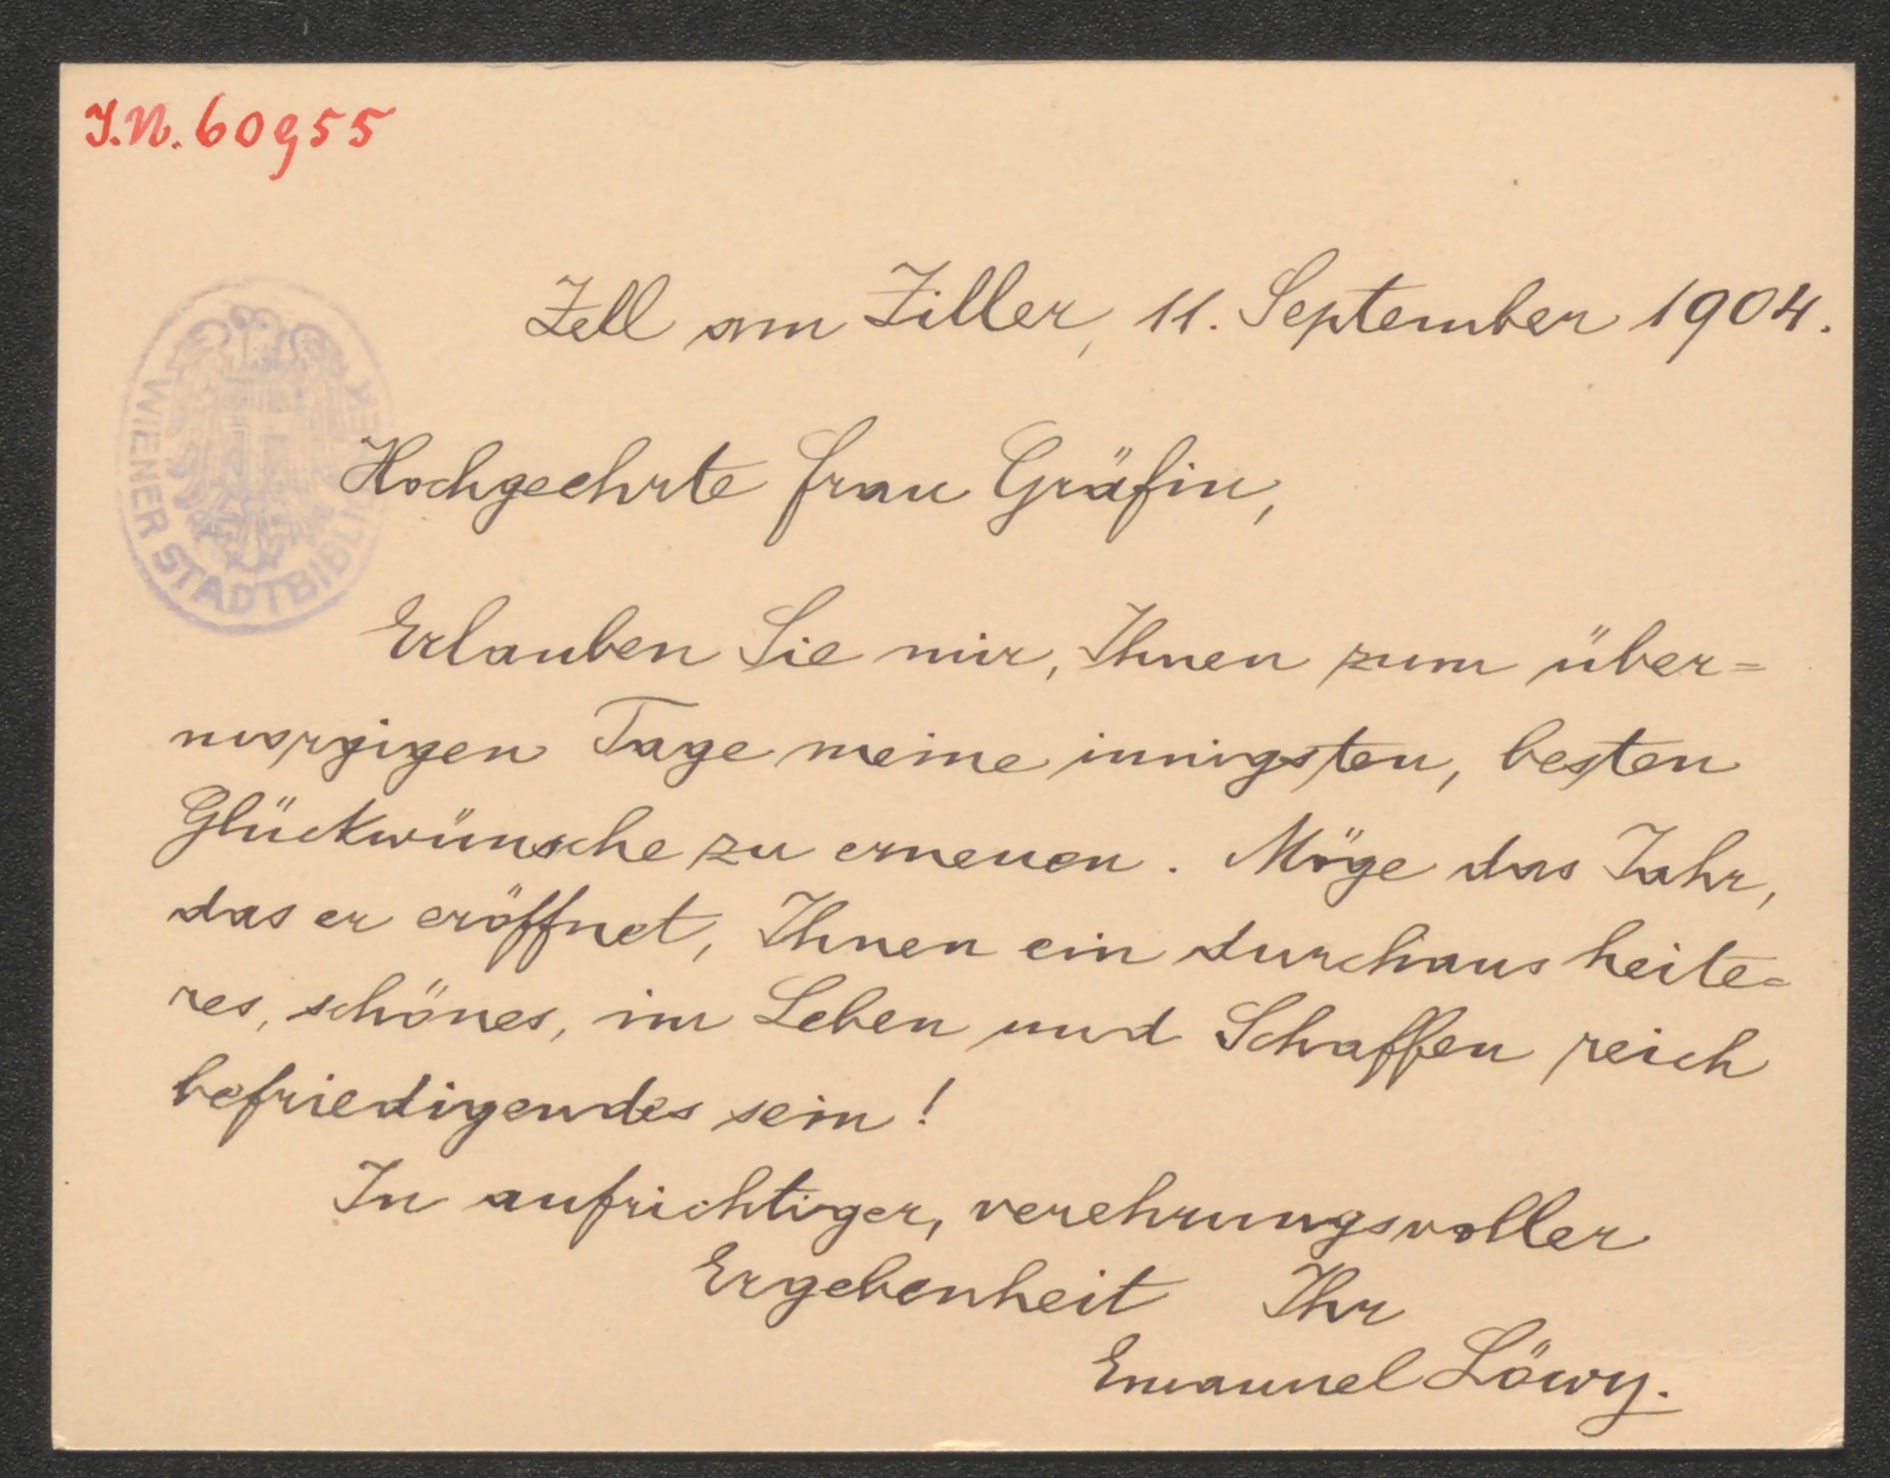 I.N. 60955
Zell am Ziller, 11. September 1904.
WIENER STADTBIBLIOTHEK
Hochgeehrte Frau Gräfin,
Erlauben Sie mir, Ihnen zum über=
morgigen Tage meine innigsten, besten
Glückwünsche zu erneuen. Möge das Jahr,
das er eröffnet, Ihnen ein durchaus heite=
res, schönes, im Leben und Schaffen reich
befriedigendes sein!
In aufrichtiger, verehrungsvoller
Ergebenheit Ihr
Emanuel Löwy.